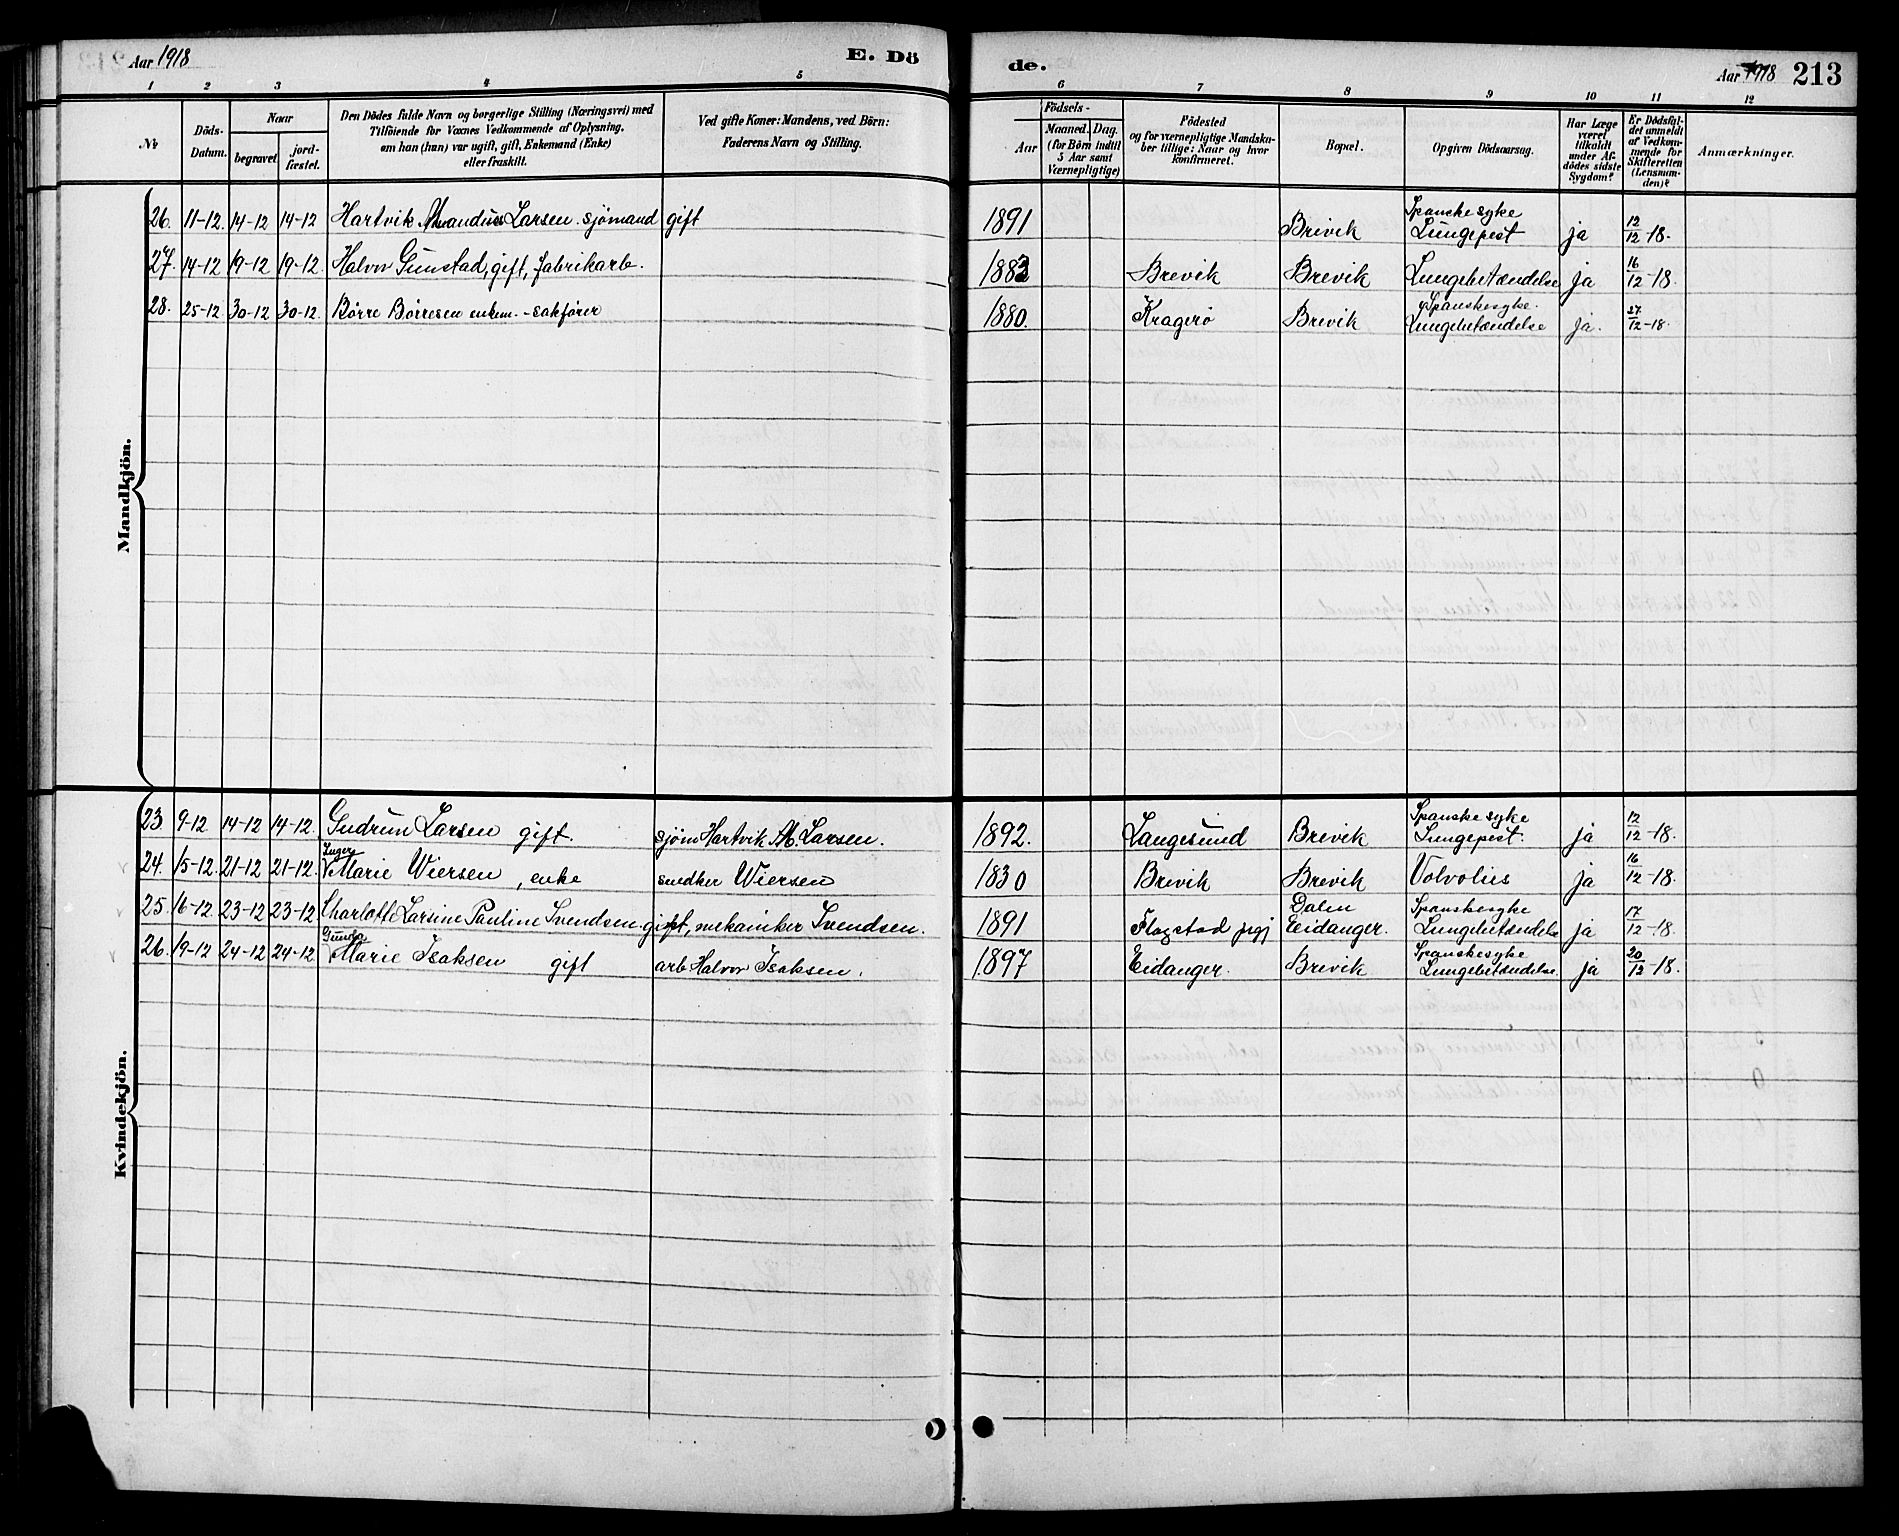 Aar 1918 E. Dö
de. Aar 1918 213
1 2 3 4 5
6 7 8 9 10 11 12
No Döds-Datum. Naar begravet jord-fæstet. Den Dödes fulde Navn og borgerlige Stilling (Næringsvei) med Tilföiende for Voxnes Vedkommende af Oplysning, om han (hun) var ugift, gift, Enkemand (Enke) eller fraskilt. Ved gifte Koner: Mandens, ved Börn: Faderens Navn og Stilling.
Födsels- Aar Maaned. Dag. (for Börn indtil 5 Aar samt Værnepligtige) Födested og for værnepligtige Mandska-ber tillige: Naar og hvor konfirmeret. Bopæl. Opgiven Dödsaarsag. Har Læge været tilkaldt under Af-dödes sidste Sygdom? Er Dödsfal-det anmeldt af Vedkom-mende for Skifteretten (Lensman-den)? Anmærkninger.
Mandkjön.
26. 11-12. 14-12 14-12 Hartvik Larsen. sjömand gift 1891 Brivik Spanske syke Lungepest ja 12/12-18.
27. 14-12 19-12 19-12. Halvor Gunstad, gift, fabrikarb. 1883 Brevik Brevik Lungebetændelse ja 16/12-18.
28. 25-12 30-12 30-12. Børre Børresen enkem. - sakfører 1880. Kragerø Brevik Spanskesyke. Lungebetændelse ja. 27/12-18.
Kvindekjön.
23. 9-12 14-12 14-12. Gudrun Larsen gift. sjøm Hartvik M. Larsen. 1892. Langesund Brevik Spanske syke Lungepest. ja 12/12-18.
24. 15-12. 21-12 21-12. Inger Marie Wiersen, enke snedker Wiersen 1830 Brevik Brevik Volvolus ja 16/12-18.
25. 16-12. 23-12 23-12. Charlotte Larsine Pauline Svendsen. gift, mekaniker Svendsen. 1891 Flagstad Dalen Eidanger. Spanskesyke Lungebetændelse ja 17/12-18.
26. 19-12 24-12 24-12. Gunda Marie Isaksen gift arb Halvor Isaksen. 1897 Eidanger. Brevik Spanskesyke Lungebetændelse. ja 20/12-18.